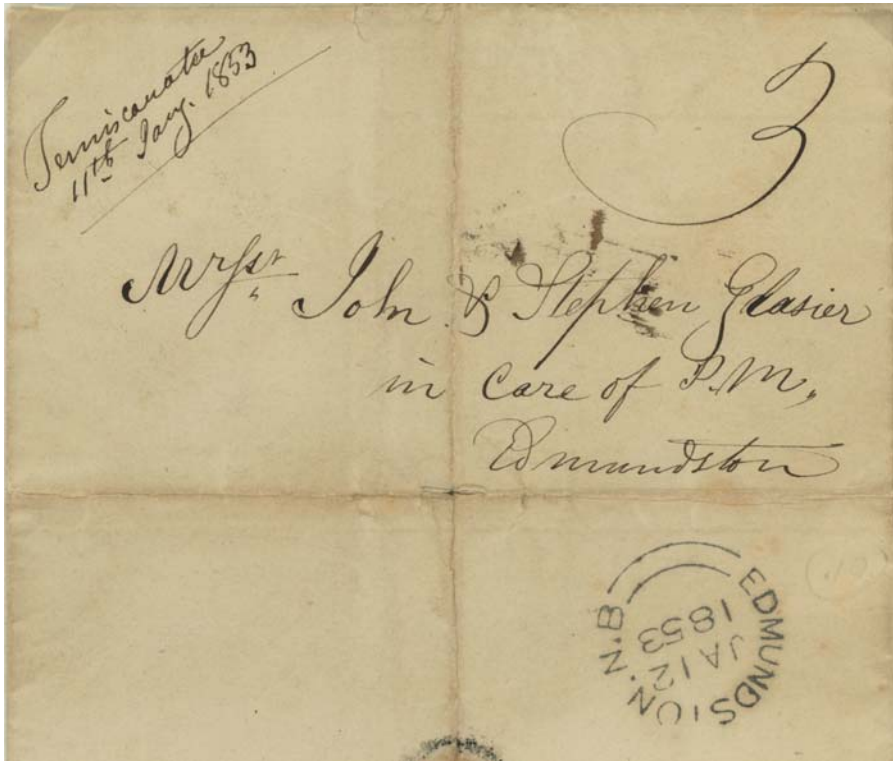 Temiscouata
11th Jany. 1853
3
Messrs John & Stephen Glasier
in care of P.M,
Edmundston
EDMUNDSTON. N.B
JA 12
1853